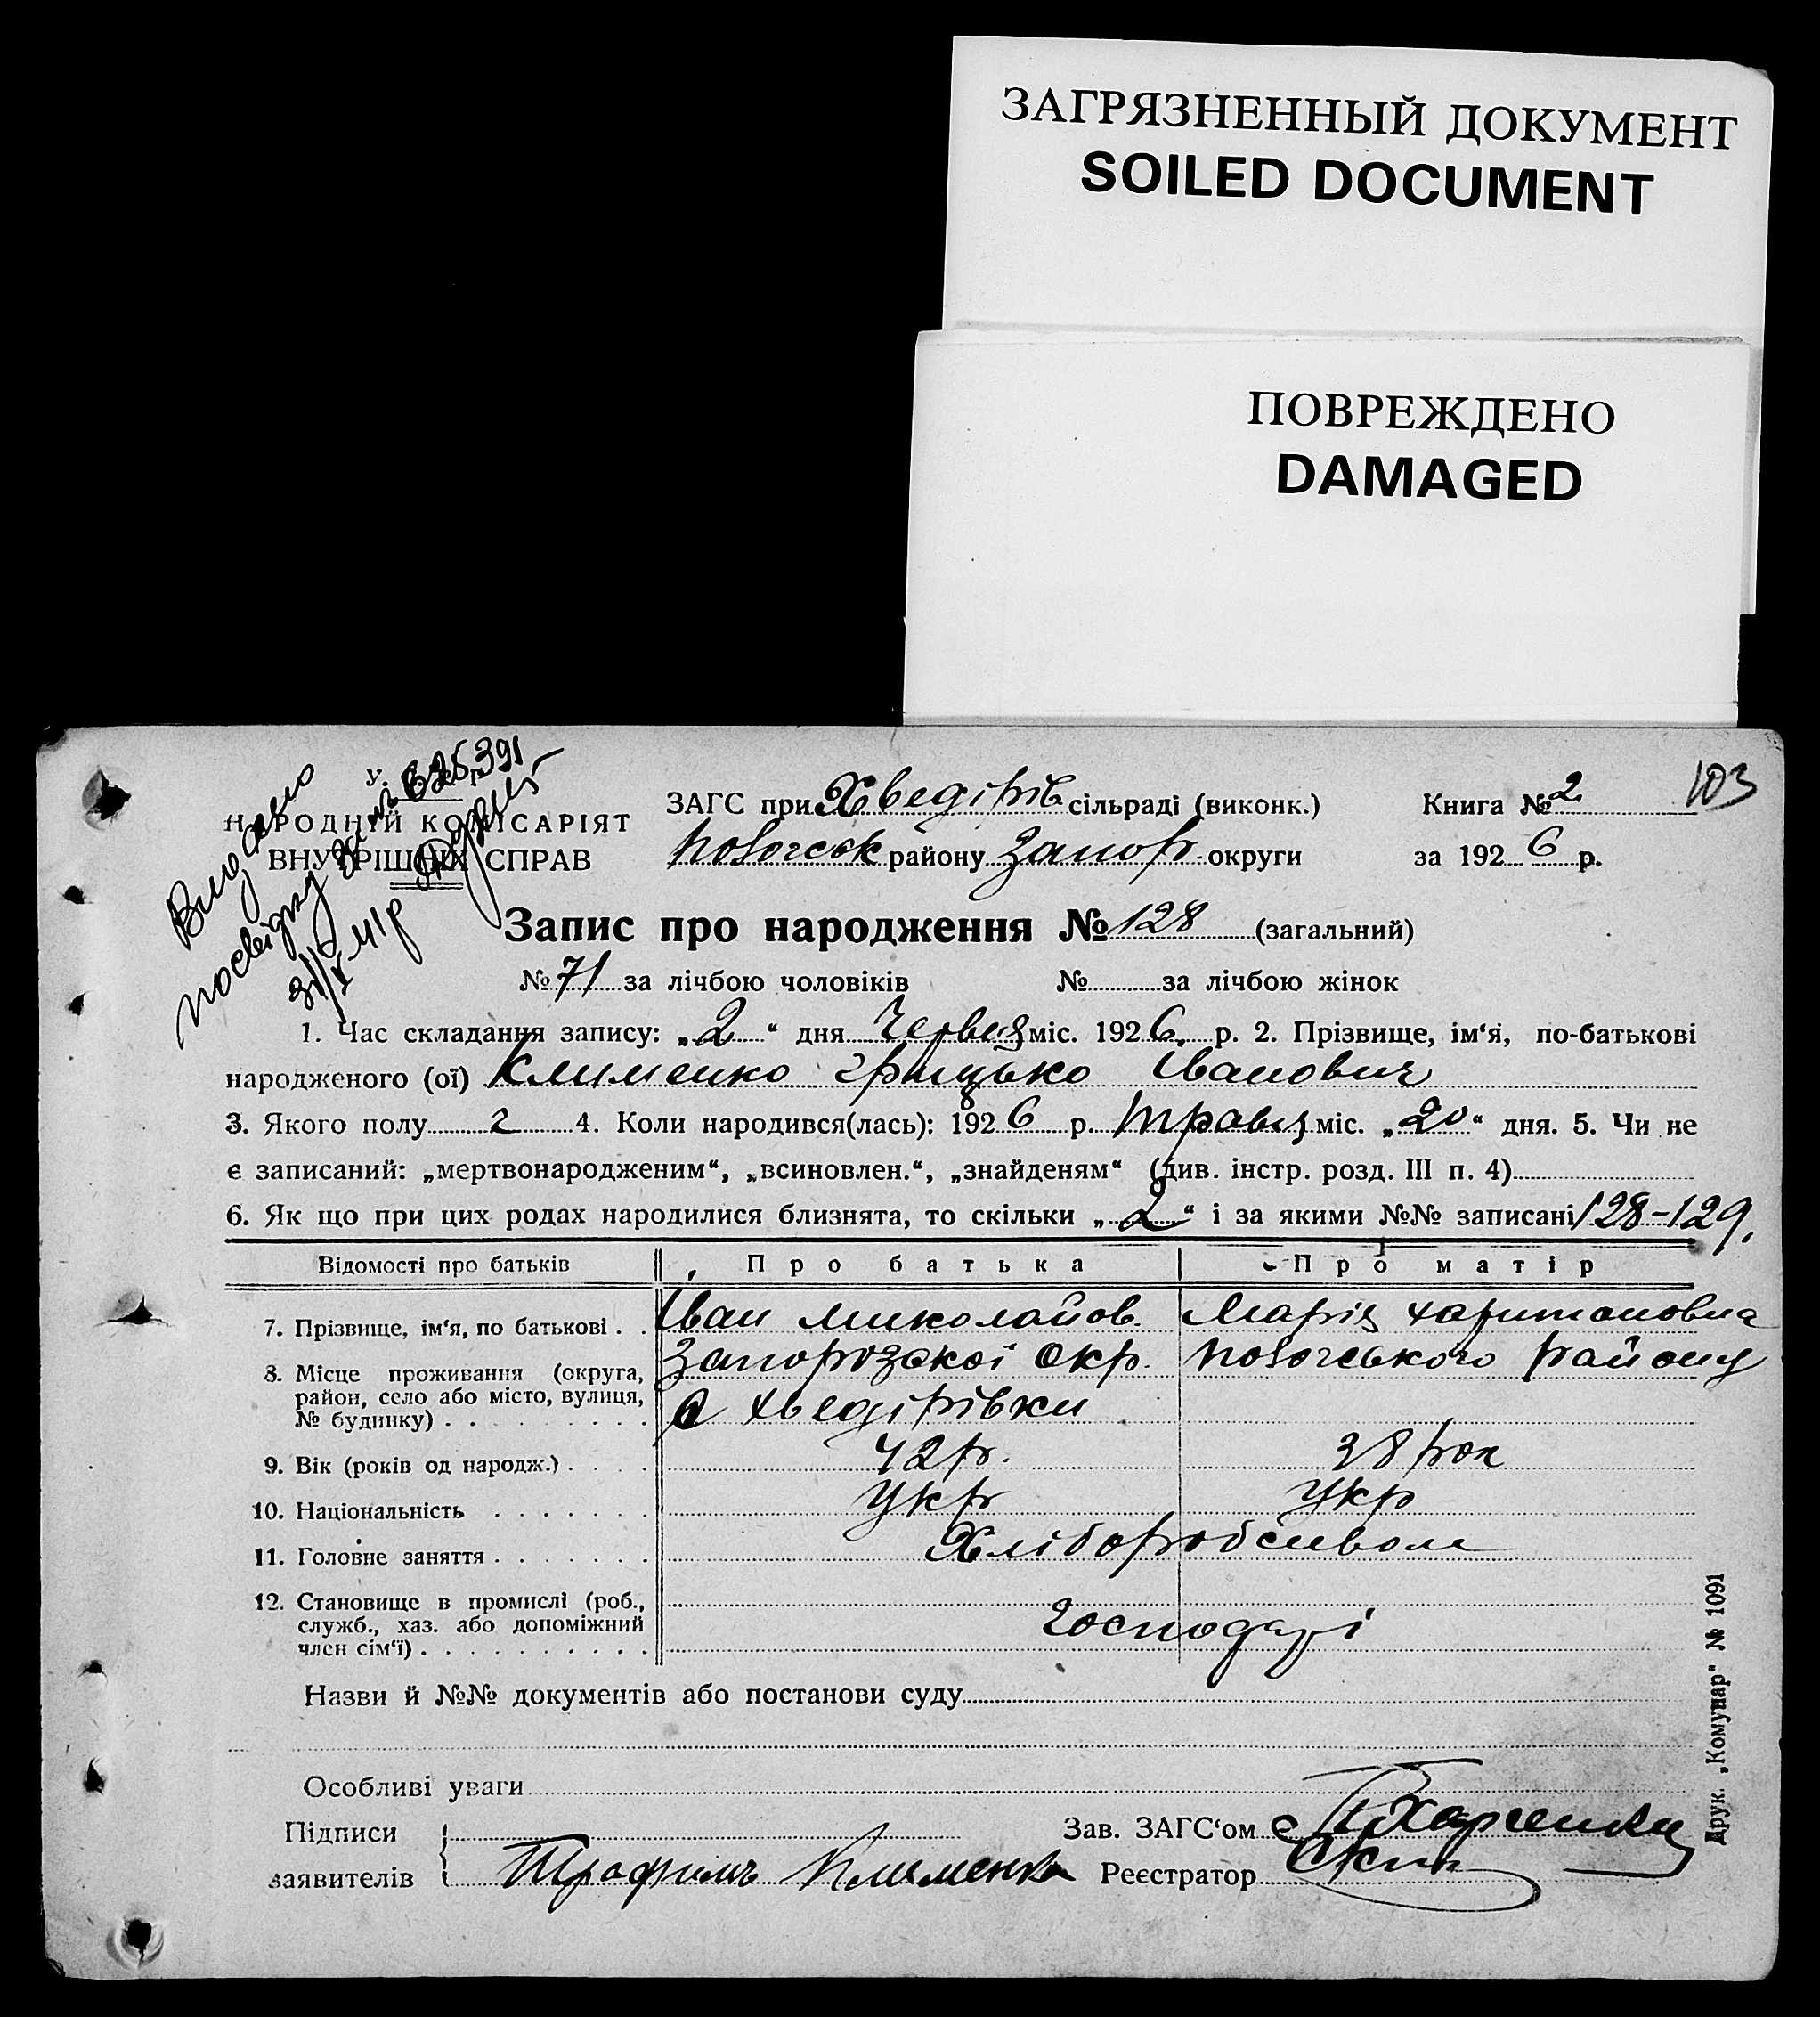 ЗАГРЯЗНЕННЫЙ ДОКУМЕНТ
SOILED DOCUMENT
ПОВРЕЖДЕНО
DAMAGED
103
Видано
посвідку за № 625391
31/X-41р
НАРОДНІЙ КОМІСАРІЯТ
ВНУТРІШНІХ СПРАВ
ЗАГС при Хведірів сільраді (виконк.) Книга № 2
району Запор. округи за 1926 р.
Запис про народження № 128 (загальний)
№ 71 за лічбою чоловіків № за лічбою жінок
1. Час складання запису: „2“ дня Червня міс. 1926 р. 2. Прізвище, ім‘я, по-батькові
народженого (ої) Клименко Грицько Іванович
3. Якого полу 4. Коли народився(лась): 1926 р. Травня міс. „20“ дня. 5. Чи не
є записаний: „мертвонародженим“, „всиновлен.“, „знайденям“ (див. інстр. розд. III п. 4)
6. Як що при цих родах народилися близнята, то скільки „2“ і за якими №№ записані 128-129.
Відомості про батьків Про батька Про матір
7. Прізвище, ім‘я, по батькові Іван Миколайов. Марія Харитоновна
8. Місце проживання (округа, район, село або місто, вулиця, № будинку) Запорізької Окр. району
с Хведірівки
9. Вік (років од народж.) 42 р. 38 рок
10. Національність Укр Укр
11. Головне заняття Хліборобсивом
12. Становище в промислі (роб., служб., хаз. або допоміжний член сім‘ї) Господарі
Назви й №№ документів або постанови суду
Особливі уваги
Підписи
заявителів Трофимъ Клименко
Зав. ЗАГС‘ом
Реєстратор
Друк. „Комунар“ № 1091